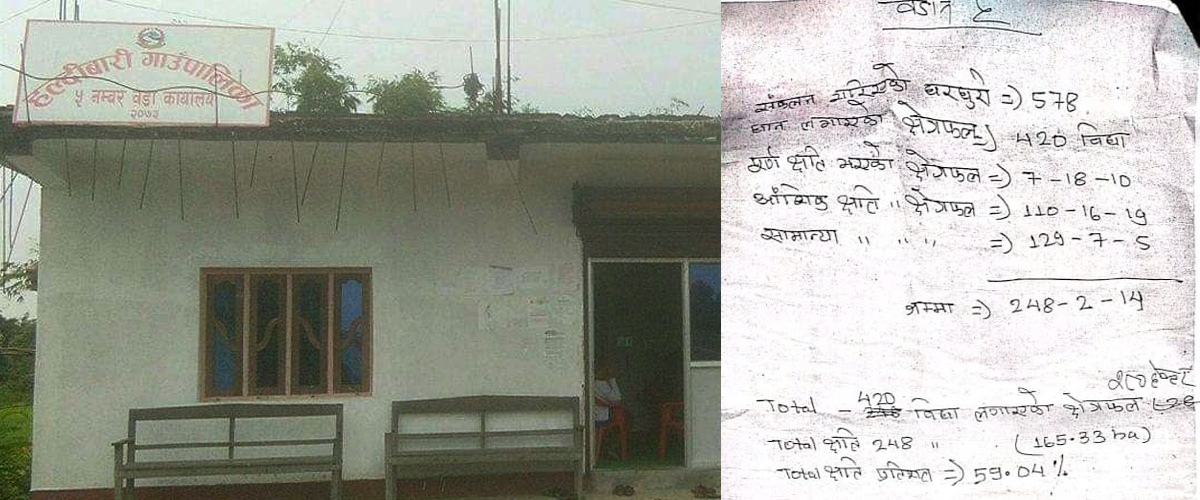 हल्दीबारी गाउँपालिका
५ नम्बर वडा कार्यालय
२०७३
वडा नं ५
संकलन गरिएको घरधुरी => 578
धान लगाएको क्षेत्रफल => 420 विघा
पूर्ण क्षति भएको क्षेत्रफल => 7-18-10
आँसिक क्षति " क्षेत्रफल => 110-16-19
सामान्या " " " => 129-7-5
जम्मा => 248-2-14
Total - 420 विघा लगाएको क्षेत्रफल
Total क्षति 248 " (165.33 ha)
Total क्षति प्रतिशत => 59.04%